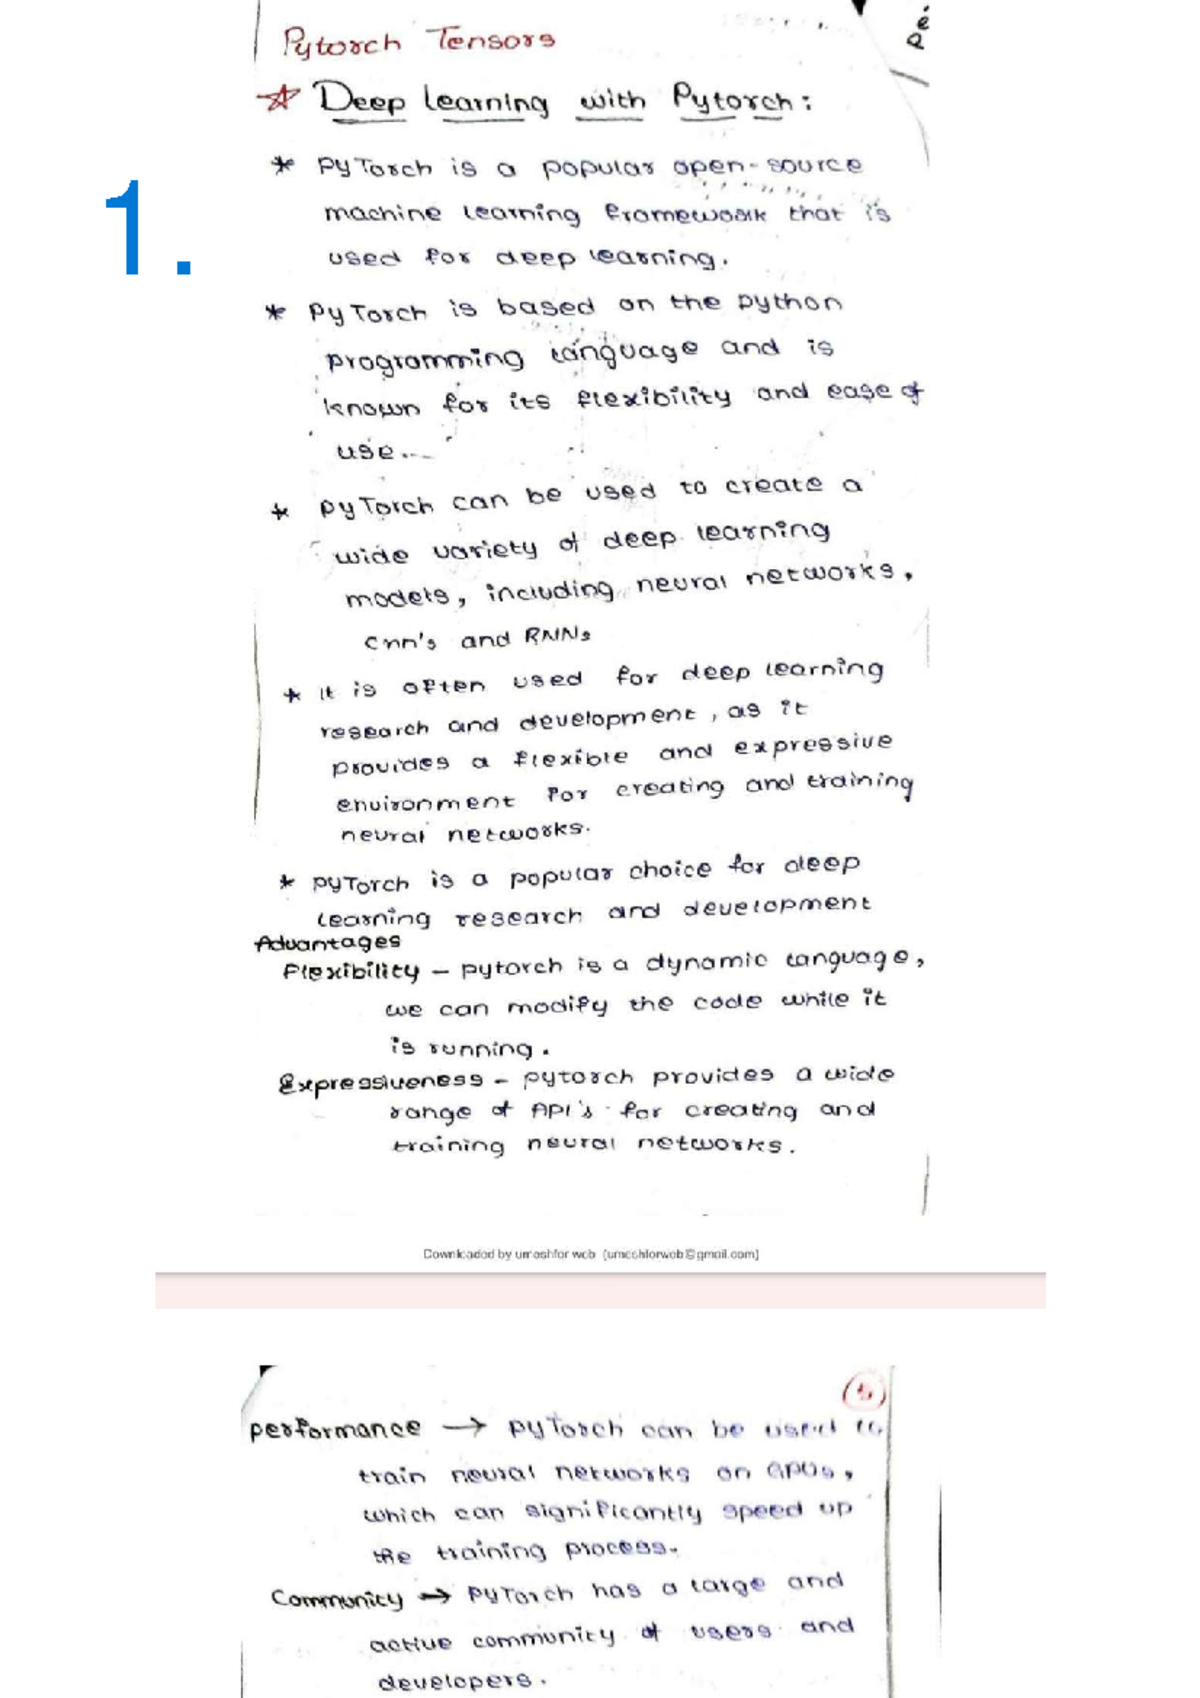 Pytorch Tensors
Deep Learning with Pytorch:
1.
* PyTorch is a popular open-source
machine learning framework that is
used for deep learning.
* PyTorch is based on the python
programming language and is
known for its flexibility and ease of
use.
* PyTorch can be used to create a
wide variety of deep learning
models, including neural networks,
Cnn's and RNNs
* It is often used for deep learning
research and development, as it
provides a flexible and expressive
environment for creating and training
neural networks.
* PyTorch is a popular choice for deep
learning research and development
Advantages
Flexibility - pytorch is a dynamic language,
we can modify the code while it
is running.
Expressiveness - pytorch provides a wide
range of API's for creating and
training neural networks.
Downloaded by umeshfor web (umeshforweb@gmail.com)
performance → pyTorch can be used to
train neural networks on GPUs,
which can significantly speed up
the training process.
Community → PyTorch has a large and
active community of users and
developers.